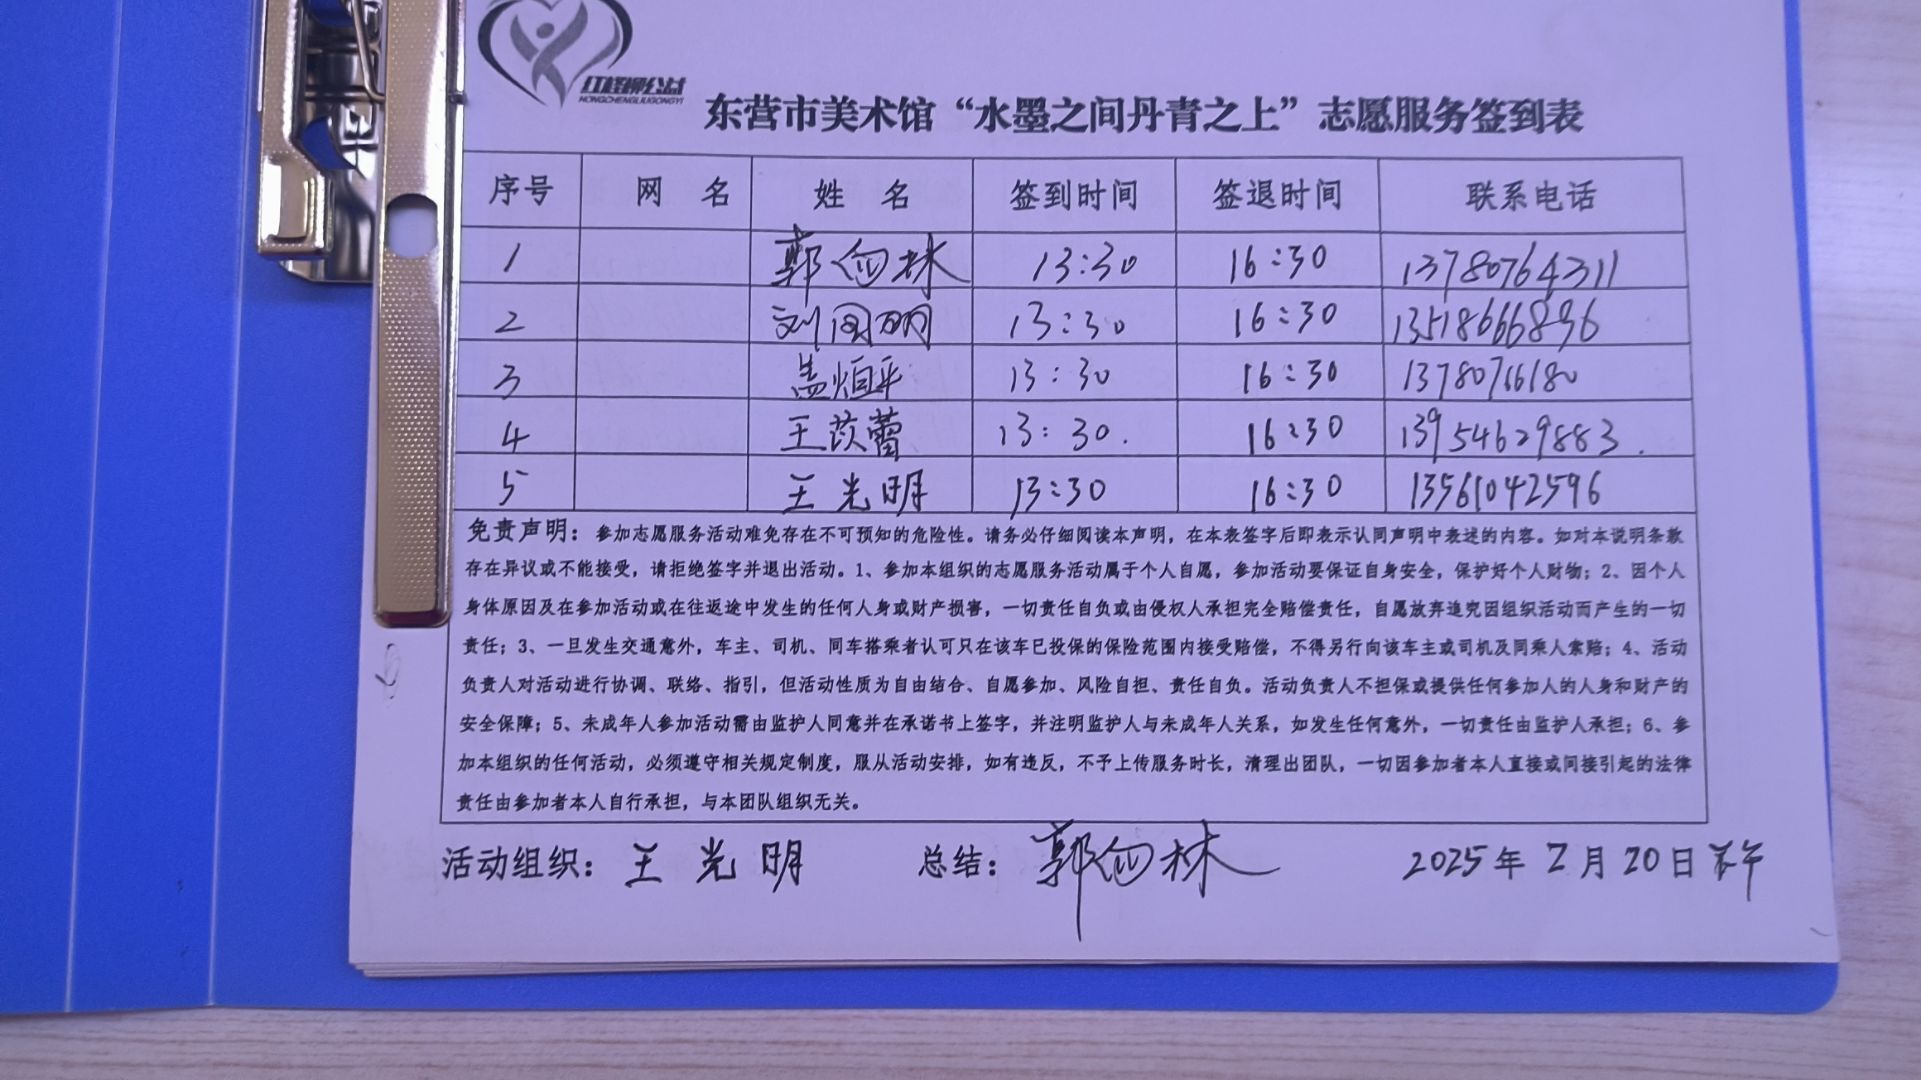 红柽柳公益
HONGCHENGLIUGONGYI
东营市美术馆“水墨之间丹青之上”志愿服务签到表
序号 网 名 姓 名 签到时间 签退时间 联系电话
1 郭 林 13:30 16:30 13780764311
2 刘 丽 13:30 16:30 13518666896
3 盖烜平 13:30 16:30 13780766180
4 王苡蕾 13:30. 16:30 13954629883.
5 王光明 13:30 16:30 13561042596
免责声明：参加志愿服务活动难免存在不可预知的危险性。请务必仔细阅读本声明，在本表签字后即表示认同声明中表述的内容。如对本说明条款
存在异议或不能接受，请拒绝签字并退出活动。1、参加本组织的志愿服务活动属于个人自愿，参加活动要保证自身安全，保护好个人财物；2、因个人
身体原因及在参加活动或在往返途中发生的任何人身或财产损害，一切责任自负或由侵权人承担完全赔偿责任，自愿放弃追究因组织活动而产生的一切
责任；3、一旦发生交通意外，车主、司机、同车搭乘者认可只在该车已投保的保险范围内接受赔偿，不得另行向该车主或司机及同乘人索赔；4、活动
负责人对活动进行协调、联络、指引，但活动性质为自由结合、自愿参加、风险自担、责任自负。活动负责人不担保或提供任何参加人的人身和财产的
安全保障；5、未成年人参加活动需由监护人同意并在承诺书上签字，并注明监护人与未成年人关系，如发生任何意外，一切责任由监护人承担；6、参
加本组织的任何活动，必须遵守相关规定制度，服从活动安排，如有违反，不予上传服务时长，清理出团队，一切因参加者本人直接或间接引起的法律
责任由参加者本人自行承担，与本团队组织无关。
活动组织：王光明 总结：郭 林 2025年2月20日下午